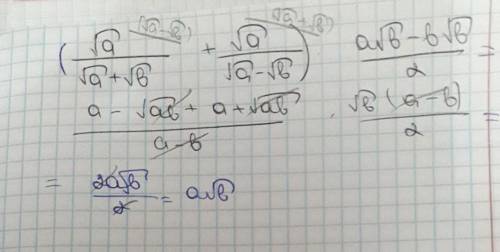 (√a/(√a+√b) ^(√a-√b) + √a/(√a-√b) ^(√a+√b)) · (a√b-b√b)/2 =
(a-√ab+a+√ab)/(a-b) · (√b(a-b))/2 =
= 2a√b/2 = a√b